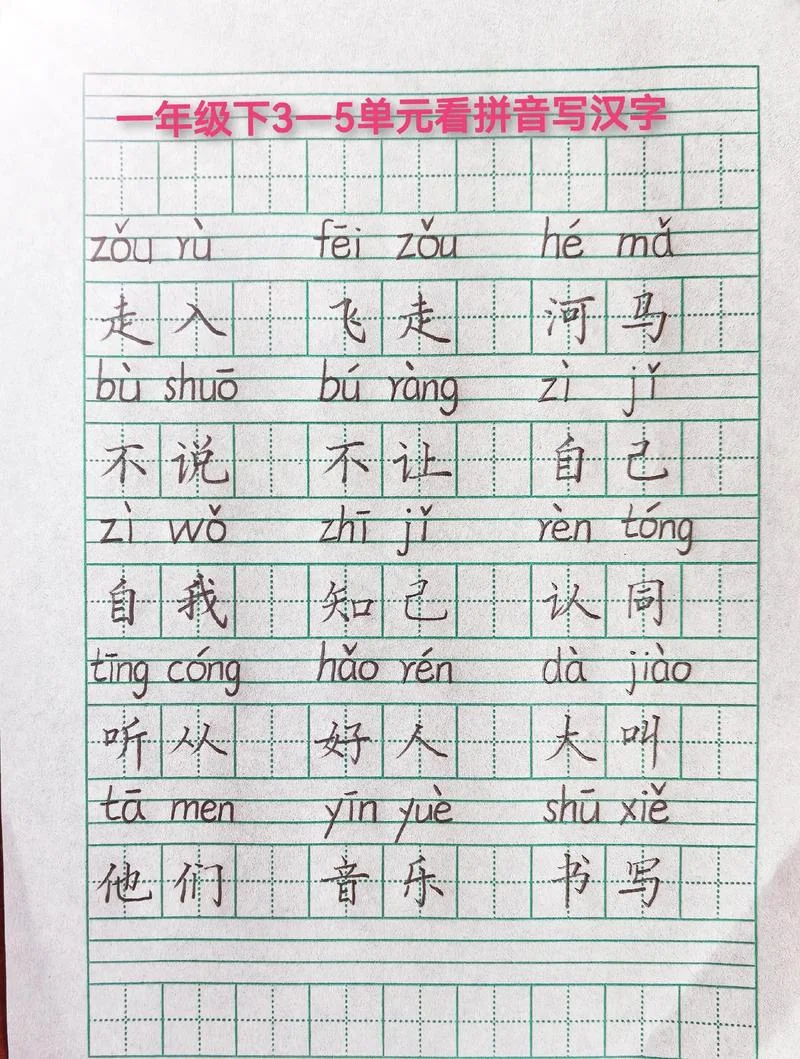 一年级下3—5单元看拼音写汉字
zǒu rù fēi zǒu hé mǎ
走入 飞走 河马
bù shuō bú ràng zì jǐ
不说 不让 自己
zì wǒ zhī jǐ rèn tóng
自我 知己 认同
tīng cóng hǎo rén dà jiào
听从 好人 大叫
tā men yīn yuè shū xiě
他们 音乐 书写